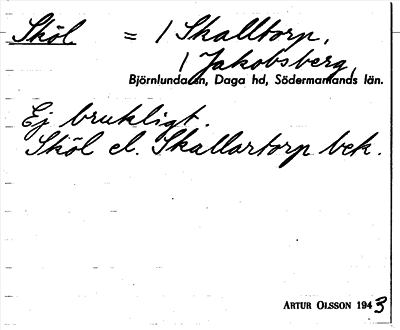 Sköl = 1 Skalltorp,
1 Jakobsberg,
Björnlunda sn, Daga hd, Södermanlands län.
Ej brukligt.
Sköl el. Skallartorp bek.
ARTUR OLSSON 1943